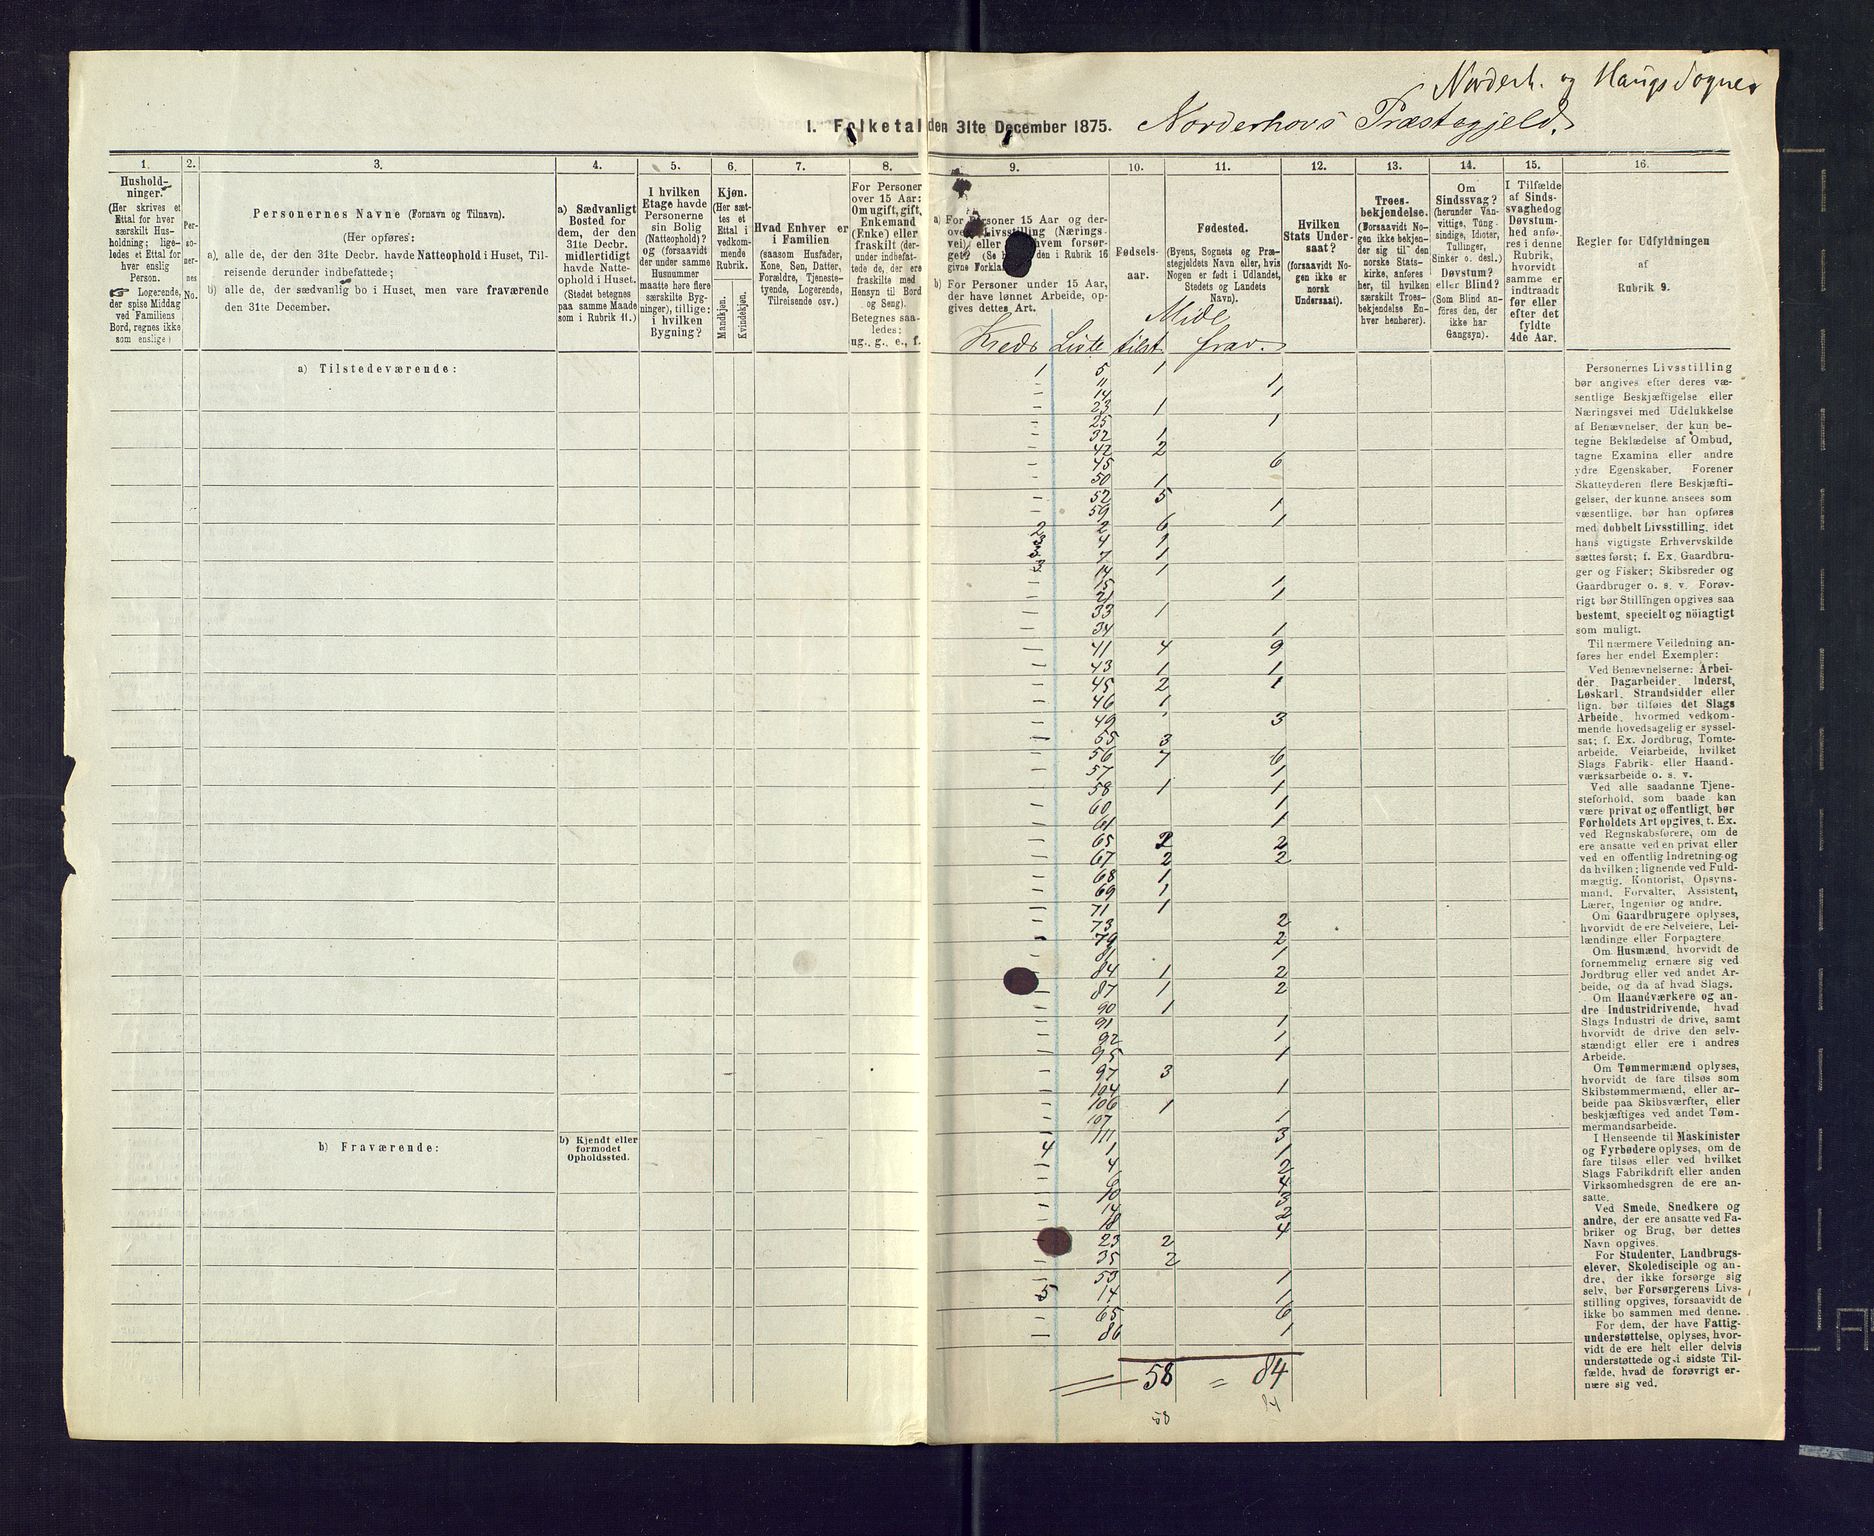 Norderh. og Haugs Sogne
I. Folketal den 31te December 1875. Norderhovs Præstegjeld.
1.
Hushold-
ninger.
(Her skrives et
Ettal for hver
særskilt Hus-
holdning; lige-
ledes et Ettal for
hver enslig
Person.
☞ Logerende,
der spise Middag
ved Familiens
Bord, regnes ikke
som enslige)
2.
Per-
so-
ner-
nes
No.
3.
Personernes Navne (Fornavn og Tilnavn).
(Her opføres:
a), alle de, der den 31te Decbr. havde Natteophold i Huset, Til-
reisende derunder indbefattede;
b) alle de, der sædvanlig bo i Huset, men vare fraværende
den 31te December.
4.
a) Sædvanligt
Bosted for
dem, der den
31te Decbr.
midlertidigt
havde Natte-
ophold i Huset.
(Stedet betegnes
paa samme Maade
som i Rubrik 11.)
5.
I hvilken
Etage havde
Personerne
sin Bolig
(Natteophold)?
og (forsaavidt
der under samme
Husnummer
maatte høre flere
særskilte Byg-
ninger), tillige:
i hvilken
Bygning?
6.
Kjøn.
(Her sæt-
tes et
Ettal i
vedkom-
mende
Rubrik.
Mandkjøn.
Kvindekjøn.
7.
Hvad Enhver er
i Familien
(saasom Husfader,
Kone, Søn, Datter,
Forældre, Tjeneste-
tyende, Logerende,
Tilreisende osv.)
8.
For Personer
over 15 Aar:
Om ugift, gift,
Enkemand
(Enke) eller
fraskilt (der-
under indbefat-
tede de, der ere
fraskilte med
Hensyn til Bord
og Seng).
Betegnes saa-
ledes:
ug., g., e., f.
9.
a) For Personer 15 Aar og der-
over: Livsstilling (Nærings-
vei) eller af hvem forsør-
get? (Se hosst den i Rubrik 16
givne Forklaring
b) For Personer under 15 Aar,
der have lønnet Arbeide, op-
gives dettes Art.
10.
Fødsels-
aar.
11.
Fødested.
(Byens, Sognets og Præ-
stegjeldets Navn eller, hvis
Nogen er født i Udlandet,
Stedets og Landets
Navn).
12.
Hvilken
Stats Under-
saat?
(forsaavidt No-
gen ikke er
norsk
Undersaat).
13.
Troes-
bekjendelse.
(Forsaavidt No-
gen ikke bekjen-
der sig til den
norske Stats-
kirke, anføres
her, til hvilken
særskilt Troes-
bekjendelse En-
hver henhører).
14.
Om
Sindssvag?
(herunder Van-
vittige, Tung-
sindige, Idioter,
Tullinger,
Sinker o. desl.)
Døvstum?
eller Blind?
(Som Blind an-
føres den, der
ikke har
Gangsyn).
15.
I Tilfælde
af Sinds-
svaghed og
Døvstum-
hed anfø-
res i denne
Rubrik,
hvorvidt
samme er
indtraadt
før eller
efter det
fyldte
4de Aar.
16.
Regler for Udfyldningen
af
Rubrik 9.
Mide
Kreds Liste tilst. frav.
a) Tilstedeværende:
1 5 1
11 1
14 1
23 1
25 1
32 1
42 2
45 6
50 1
52 5
59 1
2 2 6 1
4 1
7 1
14 1
15 1
21 1
33 1
34 1
41 4 9
43 1 1
45 2 1
46 1
49 3
55 3
56 7 6
57 1
58 1 1
60 1
61 1
65 2 2
67 2 2
68 1
69 1
71 1
73 2
79 2
81 1
84 1 2
87 1 2
90 1
91 1
92 1
95 1
97 3
104 1
106 1
107 1
111 3
4 1 1
4 2
10 3
14 2
18 4
23 2
35 2
53 1
5 14 1
65 6
86 1
58 = 84
58 84
b) Fraværende:
b) Kjendt eller
formodet
Opholdssted.
Personernes Livsstilling
bør angives efter deres væ-
sentlige Beskjæftigelse eller
Næringsvei med Udelukkelse
af Benævnelser, der kun be-
tegne Beklædelse af Ombud,
tagne Examina eller andre
ydre Egenskaber. Forener
Skatteyderen flere Beskjæfti-
gelser, der kunne ansees som
væsentlige, bør han opføres
med dobbelt Livsstilling, idet
hans vigtigste Erhvervskilde
sættes først; f. Ex. Gaardbru-
ger og Fisker; Skibsreder og
Gaardbruger o. s. v. Forøv-
rigt bør Stillingen opgives saa
bestemt, specielt og nöiagtigt
som muligt.
Til nærmere Veiledning an-
føres her endel Exempler:
Ved Benævnelserne: Arbei-
der, Dagarbeider, Inderst,
Løskarl, Strandsidder eller
lign. bør tilføies det Slags
Arbeide, hvormed vedkom-
mende hovedsagelig er syssel-
sat; f. Ex. Jordbrug, Tomte-
arbeide, Veiarbeide, hvilket
Slags Fabrik- eller Haand-
værksarbeide o. s. v.
Ved alle saadanne Tjene-
steforhold, som baade kan
være privat og offentligt, bør
Forholdets Art opgives, t. Ex.
ved Regnskabsførere, om de
ere ansatte ved en privat eller
ved en offentlig Indretning og
da hvilken; lignende ved Fuld-
mægtig, Kontorist, Opsyns-
mand, Forvalter, Assistent,
Lærer, Ingeniør og andre.
Om Gaardbrugere oplyses,
hvorvidt de ere Selveiere, Lei-
lændinge eller Forpagtere.
Om Husmænd, hvorvidt de
fornemmelig ernære sig ved
Jordbrug eller ved andet Ar-
beide, og da af hvad Slags.
Om Haandværkere og an-
dre Industridrivende, hvad
Slags Industri de drive, samt
hvorvidt de drive den selv-
stændigt eller ere i andres
Arbeide.
Om Tømmermænd oplyses,
hvorvidt de fare tilsøs som
Skibstømmermænd, eller ar-
beide paa Skibsværfter, eller
beskjæftiges ved andet Tøm-
mermandsarbeide.
I Henseende til Maskinister
og Fyrbødere oplyses, om de
fare tilsøs eller ved hvilket
Slags Fabrikdrift eller anden
Virksomhedsgren de ere an-
satte.
Ved Smede, Snedkere og
andre, der ere ansatte ved Fa-
briker og Brug, bør dettes
Navn opgives.
For Studenter, Landbrugs-
elever, Skoledisciple og an-
dre, der ikke forsørge sig
selv, bør Forsørgerens Livs-
stilling opgives, forsaavidt de
ikke bo sammen med denne.
For dem, der have Fattig-
understøttelse, oplyses, hvor-
vidt de ere helt eller delvis
understøttede og i sidste Til-
fælde, hvad de forøvrigt er-
nære sig ved.